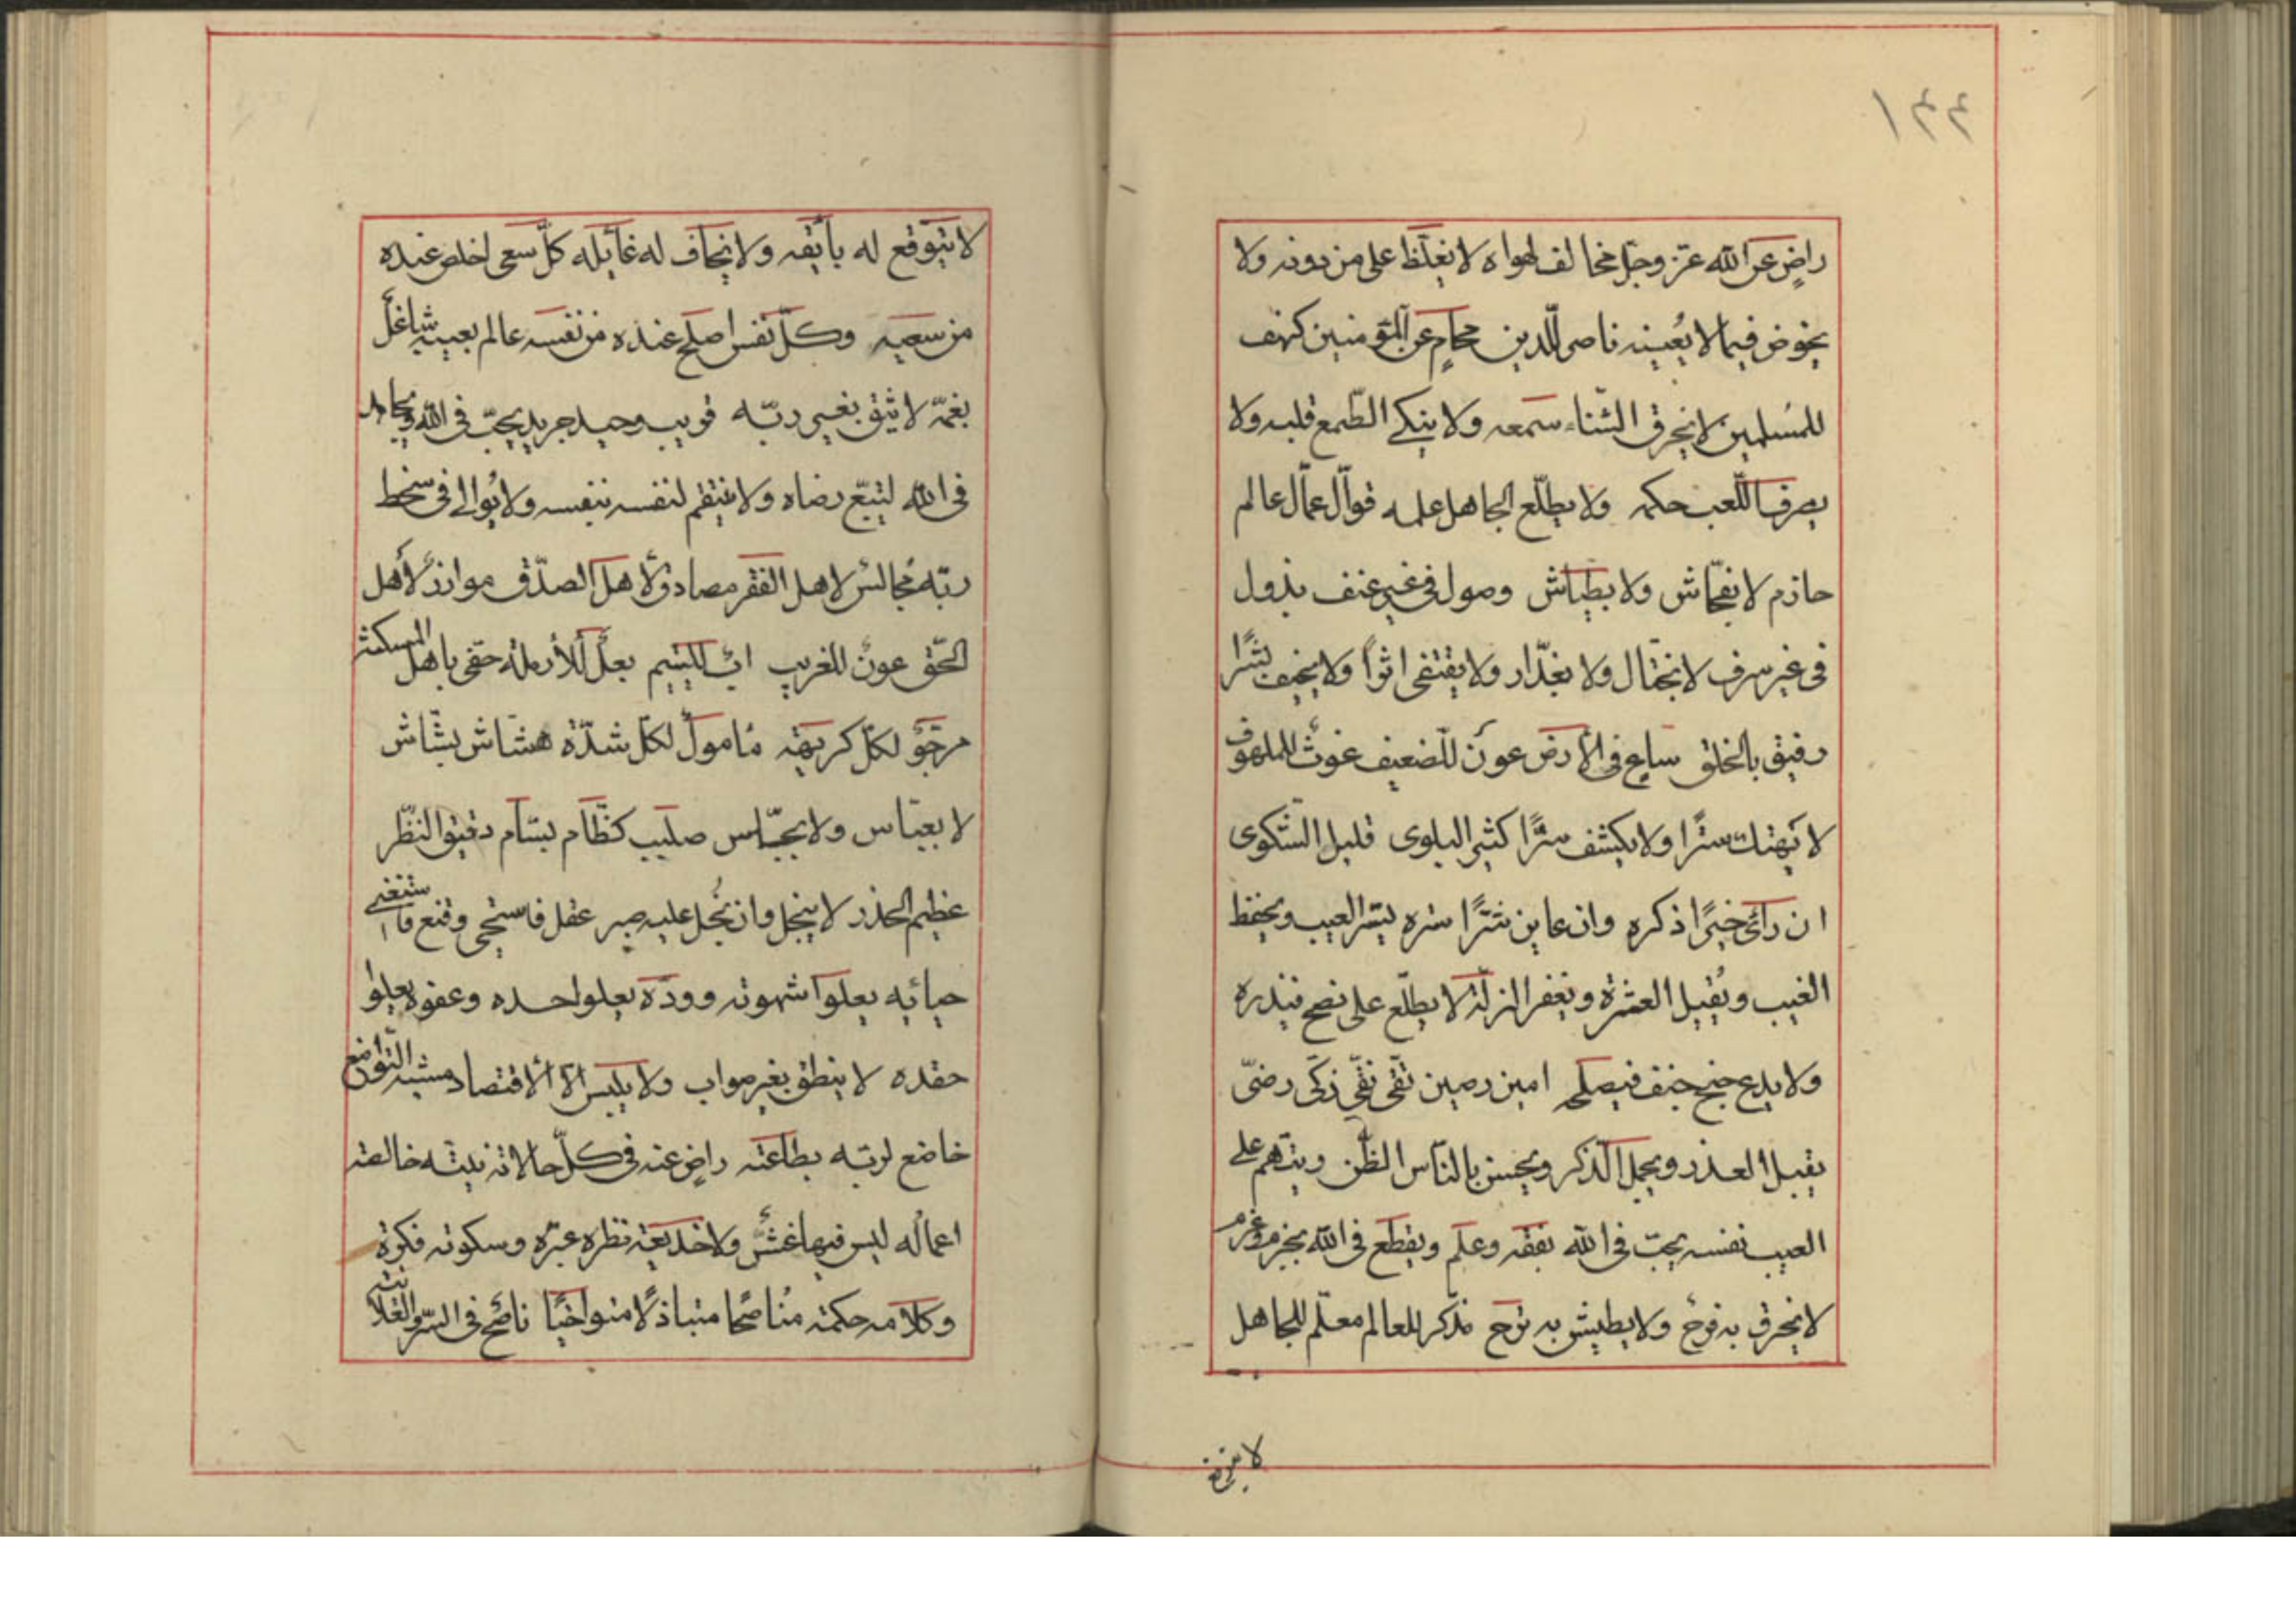 ١٤٤
راضٍ عن الله عزّ وجلّ مخالف لهواه لا يغلظ على من دونه ولا
يخوض فيما لا يُعينه ناصر للّدين محامٍ عن المؤمنين كهف
للمُسلمين لا يخرق الثّناء سمعه ولا ينكي الطّمع قلبه ولا
يصرف اللّعب حكمه ولا يطلّع الجاهل علمه قوّال عمّال عالم
حازم لا بفحّاش ولا بطيّاش وصول فى غير عنف بذول
فى غير سرف لا بختّال ولا بغدّار ولا يقتفى اثراً ولا يخيف بشرًا
رفيق بالخلق ساعٍ فى الأرض عون للضعيف غوث للملهوف
لا يهتك سترًا ولا يكشف سرًّا كثير البلوى قليل الشّكوى
ان راى خيرًا ذكره وان عاين شرًّا ستره يستر العيب ويحفظ
الغيب ويُقيل العثرة ويغفر الزلّة لا يطلّع على نصح فيذره
ولا يدع جنح حيف فيصلحه امين رصين تقّى نقّى زكّى رضىّ
يقبل العذر ويجمل الذّكر ويحسن بالنّاس الظّن ويتّهم على
العيب نفسه يحبّ فى الله بفقه وعلم ويقطع فى الله بحزم وعزم
لا يخرق به فرح ولا يطيش به ترح مذكّر للعالم معلّم للجاهل
لا يتوقع
لا يتوقع له بائقه ولا يخاف له غائله كلّ سعى اخلص عنده
من سعيه وكلّ نفس اصلح عنده من نفسه عالم بعيبه شاغل
بغمّه لا يثق بغير ربّه قريب وحيد جريد يحبّ فى الله ويجاهد
فى الله ليتبّع رضاه ولا ينتقم لنفسه بنفسه ولا يُوالى فى سخط
ربّه مُجالس لاهل الفقر مصادق لاهل الصدّق موازر لأهل
الحّق عون للغريب اب لليتيم بعل للأرملة حفى باهل المسكنة
مرجوّ لكلّ كريهة مامول لكلّ شدّة هشّاش بشّاش
لا بعبّاس ولا بجسّاس صليب كظّام بسّام دقيق النّظر
عظيم الحذر لا يبخل وان بُخل عليه صبر عقل فاستحى وقنع فاستغنى
حيائه يعلوا شهوته وودّه يعلو احسده وعفوه يعلوا
حقده لا ينطق بغير صواب ولا يلبس الّا الاقتصاد مشيه التّواضع
خاضع لربّه بطاعته راضٍ عنه فى كلّ حالاته نيته خالصه
اعماله ليس فيها غشّ ولا خديعة نظره عبرّه وسكوته فكرة
وكلامه حكمة مُناصحًا متباذلًا متواخيًا ناصح فى السّر والعلانيته